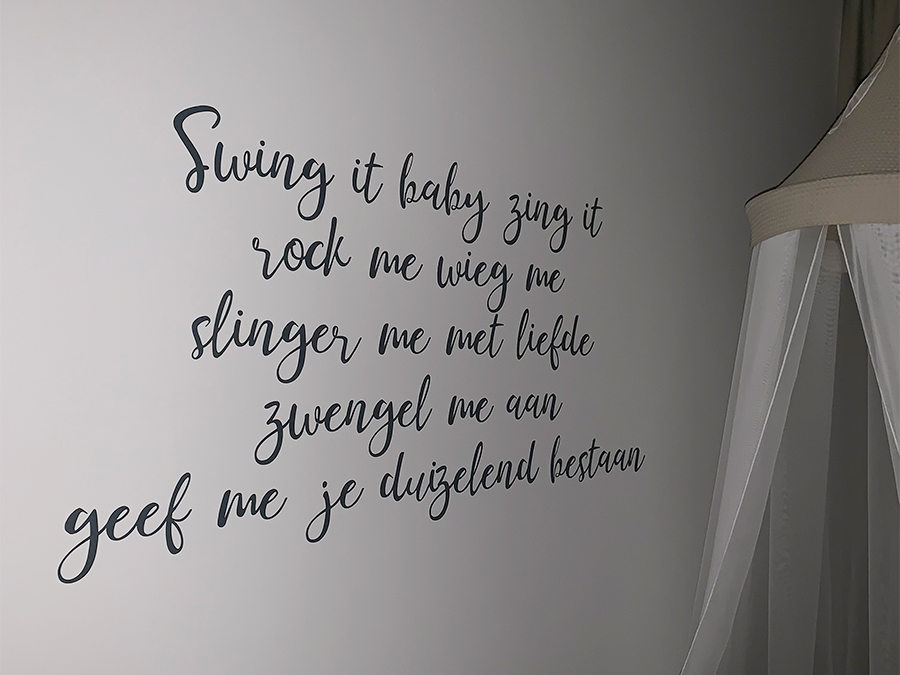 Swing it baby zing it
rock me wieg me
slinger me met liefde
zwengel me aan
geef me je duizelend bestaan